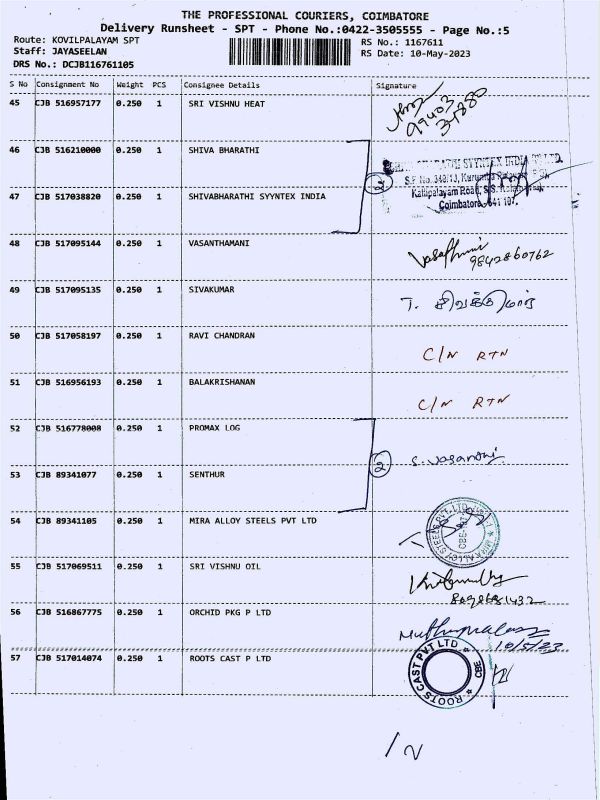 THE PROFESSIONAL COURIERS, COIMBATORE
Delivery Runsheet - SPT - Phone No.:0422-3505555 - Page No.:5
Route: KOVILPALAYAM SPT
RS No.: 1167611
Staff: JAYASEELAN
RS Date: 10-May-2023
DRS No.: DCJB116761105
S No Consignment No Weight PCS Consignee Details Signature
45 CJB 516957177 0.250 1 SRI VISHNU HEAT
99403
34880
46 CJB 516210000 0.250 1 SHIVA BHARATHI
SYYNTEX INDIA
47 CJB 517038820 0.250 1 SHIVABHARATHI SYYNTEX INDIA
Coimbatore - 641 107.
48 CJB 517095144 0.250 1 VASANTHAMANI
9842860762
49 CJB 517095135 0.250 1 SIVAKUMAR T. சிவக்குமார்
50 CJB 517058197 0.250 1 RAVI CHANDRAN C/N RTN
51 CJB 516956193 0.250 1 BALAKRISHANAN C/N RTN
52 CJB 516778008 0.250 1 PROMAX LOG
2 S. Vasanthi
53 CJB 89341077 0.250 1 SENTHUR
54 CJB 89341105 0.250 1 MIRA ALLOY STEELS PVT LTD
MIRA ALLOY STEELS PVT. LTD.
55 CJB 517069511 0.250 1 SRI VISHNU OIL
56 CJB 516867775 0.250 1 ORCHID PKG P LTD
10/5/23
57 CJB 517014074 0.250 1 ROOTS CAST P LTD
ROOTS CAST PVT LTD * CBE *